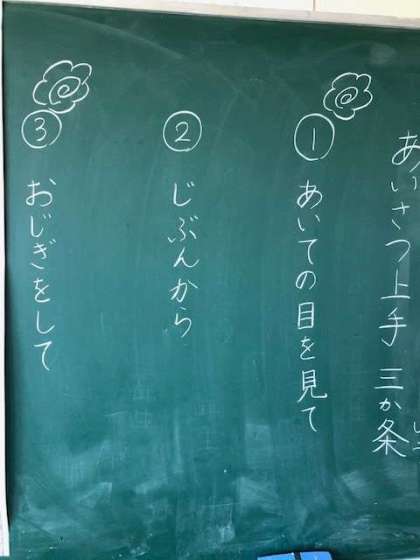 あいさつ上手 三か条
① あいての目を見て
② じぶんから
③ おじぎをして